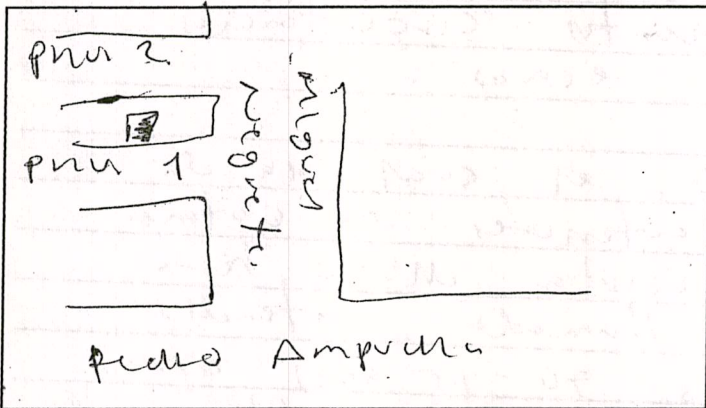 priv 2
priv 1
Miguel
Negrete
Pedro Ampudia